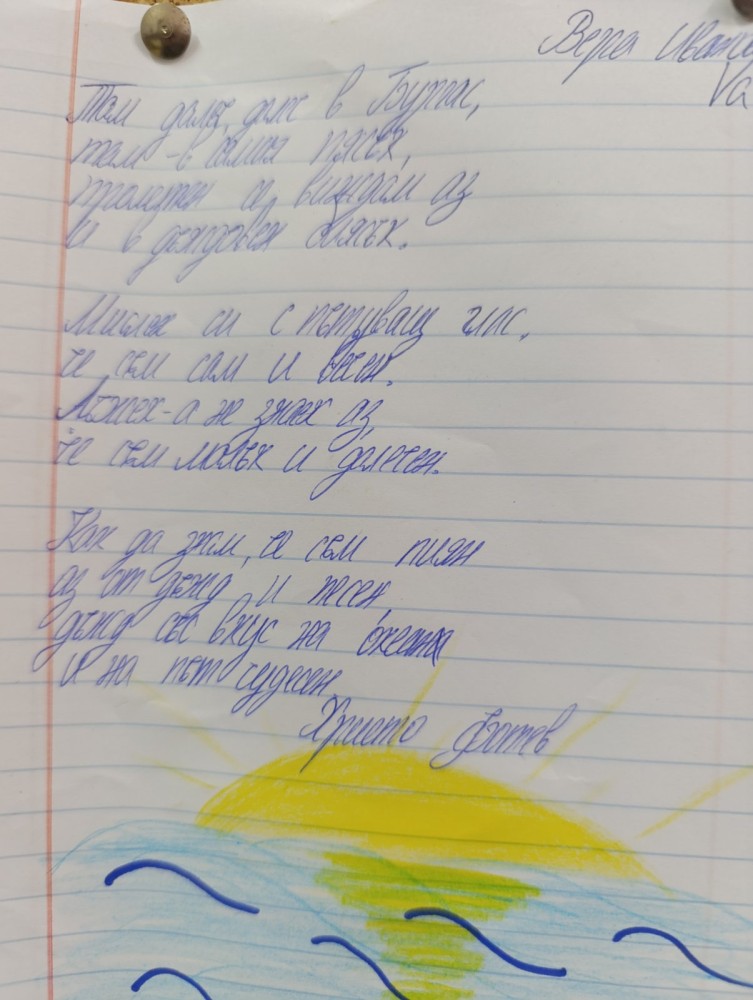 Вера Иванова
Va
Там далеч, далеч в Бургас,
там - в самия пясък,
тръгнал се виждам аз
и в дъждовен блясък.
Мислех си с пътуващ глас,
че съм сам и весен.
Лъжех - а не знаех аз,
че съм малък и далечен.
Как да знам, че съм пиян
аз от дъжд и песен,
дъжд със вкус на океан
и на път чудесен.
Христо Фотев